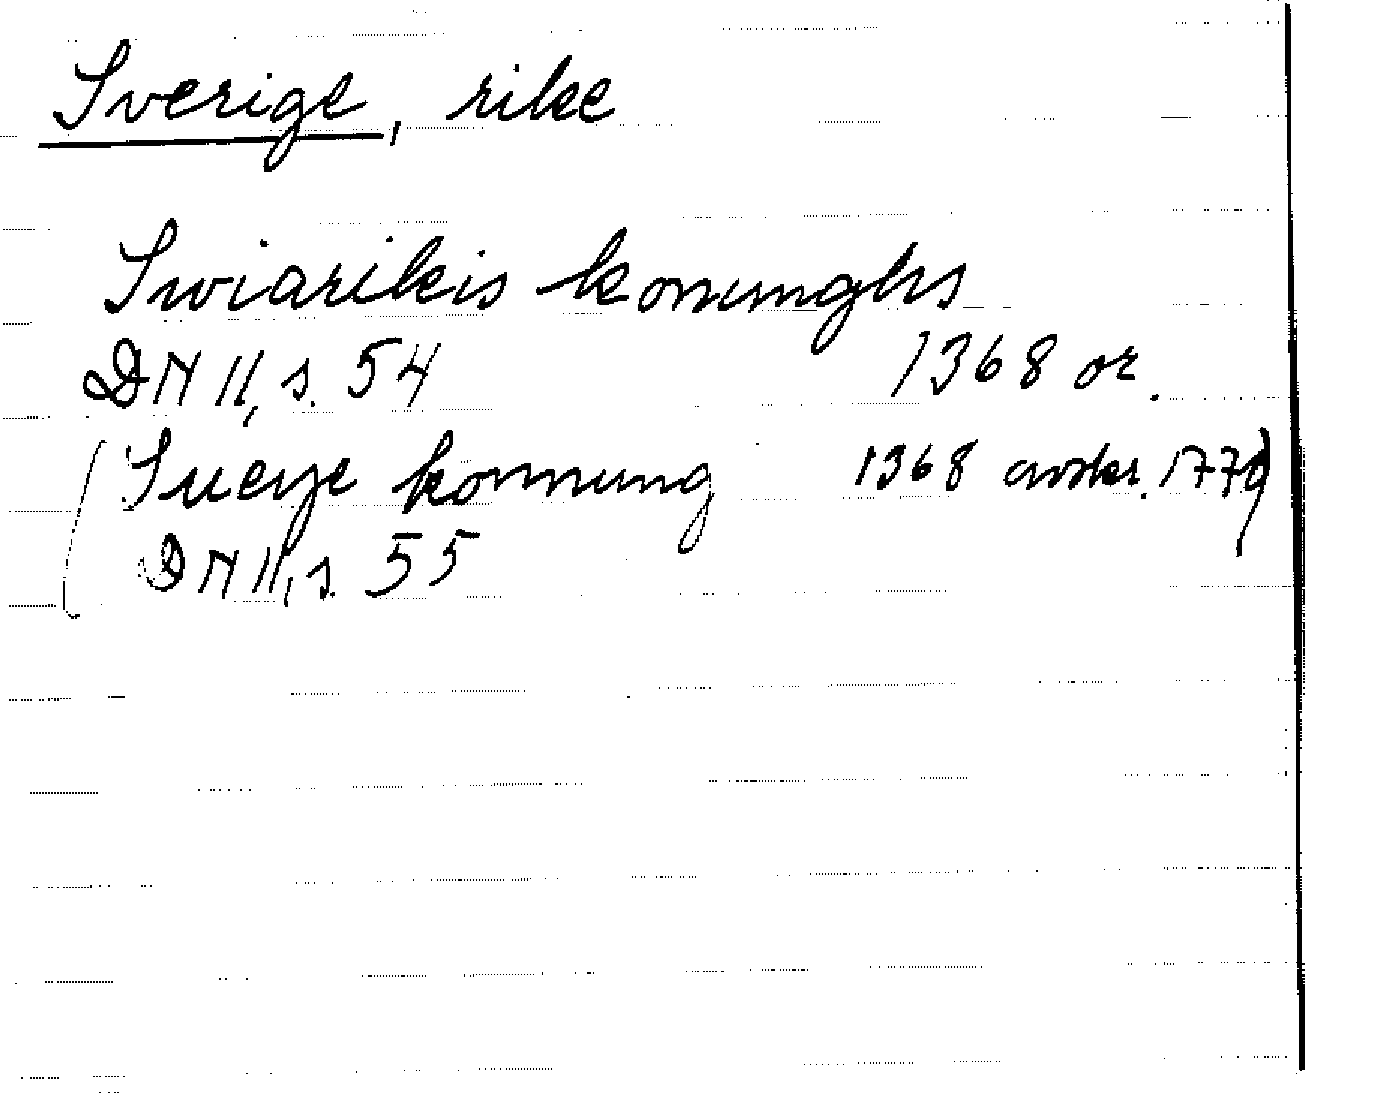 Sverige, rike
Swiarikis konunghs
DN II, s. 54 1368 or.
(Sueye konnung 1368 avskr. 1770)
DN II, s. 55